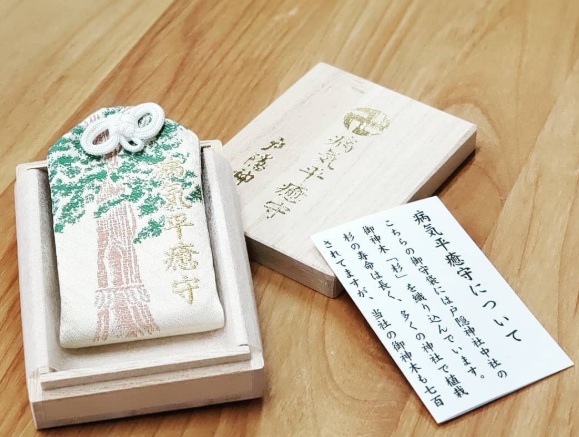 病気平癒守
病気平癒守
戸隠神
病気平癒守について
こちらの御守袋には戸隠神社中社の
御神木「杉」を織り込んでいます。
杉の寿命は長く、多くの神社で植栽
されてますが、当社の御神木も七百